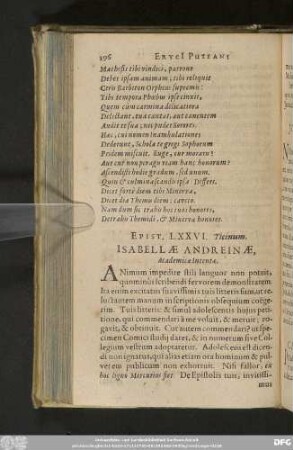 196 ERYCI PUTEANI
Mathesis tibi vindici, patrono
Debet ipsam animam; tibi relegit
Cero Barbiton Orpheus supremo:
Tibi tempora Phœbus ipse cinxit,
Quem cùm carmina dilicatiora
Delectant, tua cantat, aut canentem
Audit te sua; nec pudet Sorores.
Has, cui nomen Inambulationes
Dederunt, Schola te gregi Sophorum
Pridem miscuit. Euge, cur moraris?
Aut cur non peragis viam hanc honorum?
Ascendisti hodie gradum, sed unum.
Quem & culmina scandis ipsa? Differt.
Dicet fortè diem tibi Minerva,
Dicet dia Themis diem; caveto.
Nam dum sic trahis hos tuos honores,
Detrahis Themidi, & Minervæ honores.
EPIST. LXXVI. Ticinum.
ISABELLÆ ANDREINÆ,
Academicæ Intentæ.
ANimum impedire stili languor non potuit,
quamminùs scribendi fervorem demonstrarem.
Ita enim excitatus suavissimis tuis litteris fui, ut ce-
lo stantem manum inscriptionis obsequium cogerim.
Tuis litteris: & simul adolescentis hujus peti-
tione, qui commendari à me voluit, & meruit; ro-
gavit, & obtinuit. Cur autem commendari? ut spe-
cimen Comici studij daret, & in numerum sive Col-
legium vestrum adoptaretur. Adolescens est dicen-
di non ignarus, qui alias etiam ora hominum & pul-
verem publicum non exhorruit. Nisi fallor, ex
hoc ligno Mercurius fiet. De Epistolis tuis, invitissi-
mus